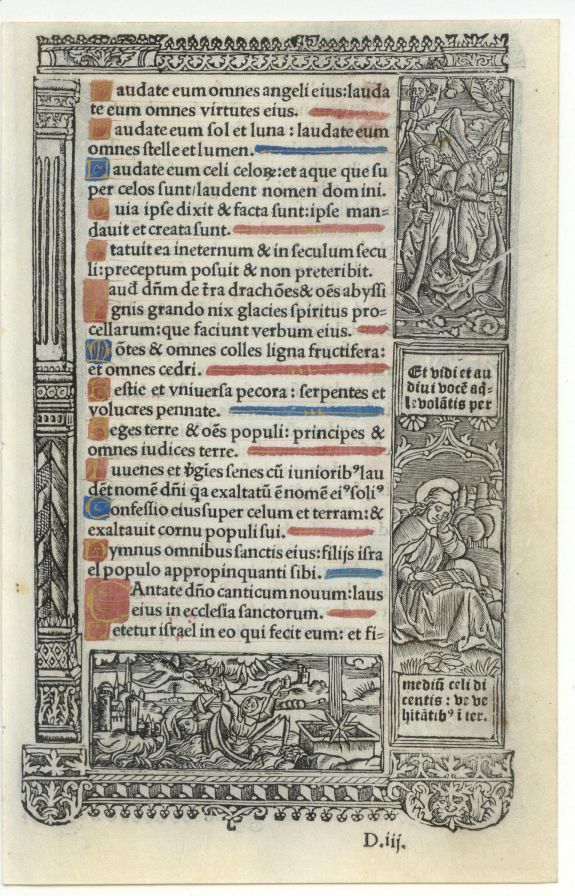 Laudate eum omnes angeli eius:lauda
te eum omnes virtutes eius.
Laudate eum ſol et luna : laudate eum
omnes ſtelle et lumen.
Laudate eum celi celoꝝ:et aque que ſu
per celos ſunt/laudent nomen domini.
Quia ipſe dixit & facta ſunt:ipſe man=
dauit et creata ſunt.
Statuit ea ineternum & in ſeculum ſecu
li:preceptum poſuit & non preteribit.
Laud̄ dñm de t̄ra drachões& oẽs abyſſi
Ignis grando nix glacies ſpiritus pro=
cellarum:que faciunt verbum eius.
Mōtes & omnes colles ligna fructifera:
et omnes cedri.
Beſtie et vniuerſa pecora : ſerpentes et
volucres pennate.
Reges terre & oẽs populi: principes &
omnes iudices terre.
Iuuenes et v̄gies ſenes cū iunioribꝰ lau
dēt nomē dñi qa exaltatū ē nomē eiꝰ ſoliꝰ
Confeſſio eius ſuper celum et terram: &
exaltauit cornu populi ſui.
Hymnus omnibus ſanctis eius:filijs iſra
el populo appropinquanti ſibi.
CAntate dño canticum nouum: laus
eius in eccleſia ſanctorum.
Letetur iſrael in eo qui fecit eum: et fi=
Et vidi et au
diui vocē aq̄=
le volātis per
mediū celi di
centis : ve ve
hītātibꝰ ī ter.
D.iij.